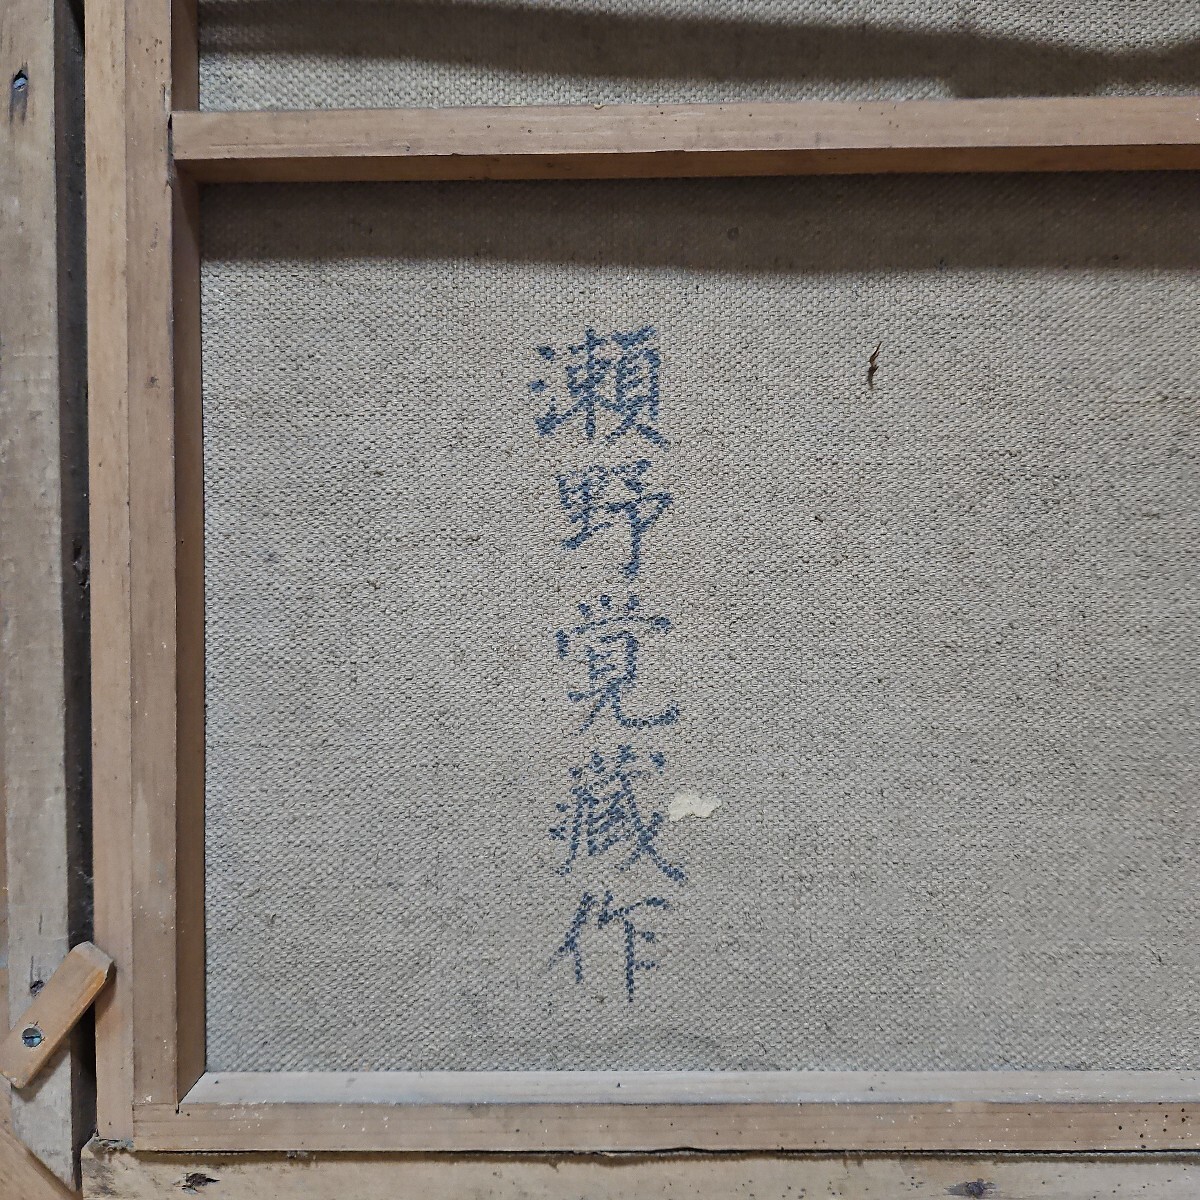 瀬野覚蔵作